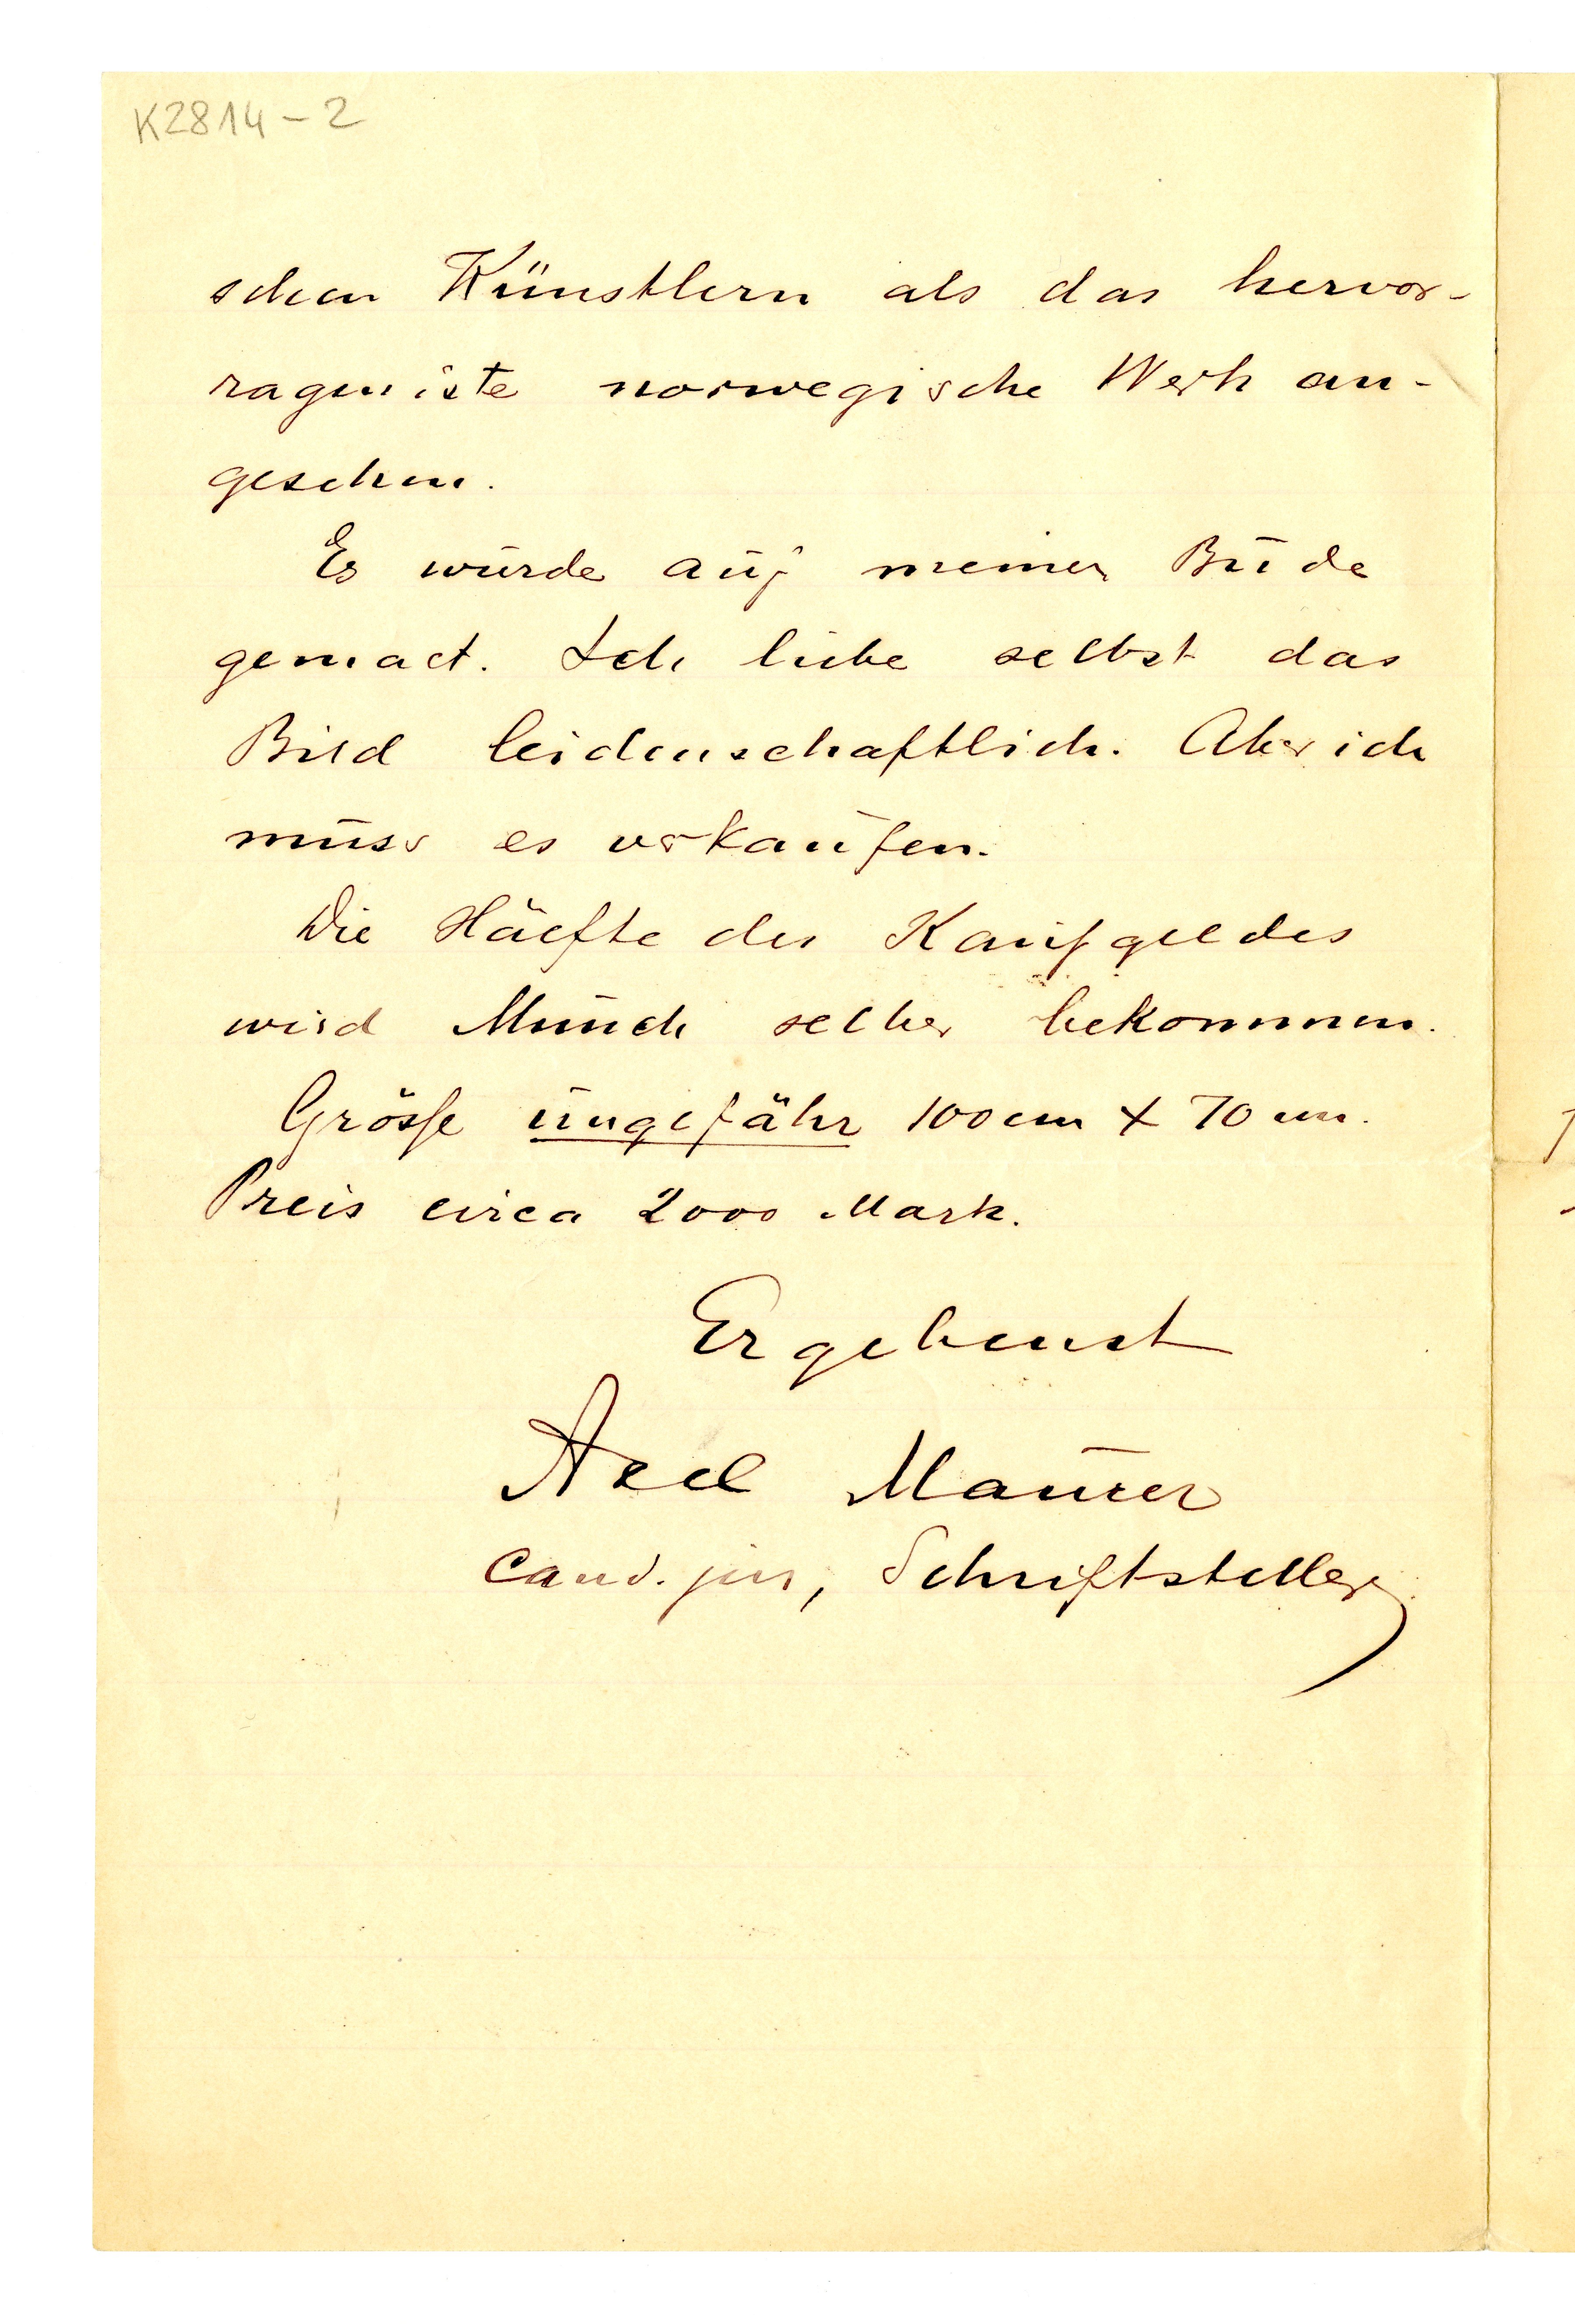 K2814-2
schen Künstlern als das hervor-
ragenste norwegische Werk an-
gesehen.
Es wurde auf meiner Bude
gemact. Ich liebe selbst das
Bild leidenschaftlich. Aber ich
muss es verkaufen.
Die Häefte des Kaufgeldes
wird Munch selber bekommen.
Grösse ungefähr 100 cm × 70 cm.
Preis circa 2000 Mark.
Ergebenst
Axel Maurer
Cand. jur, Schriftsteller